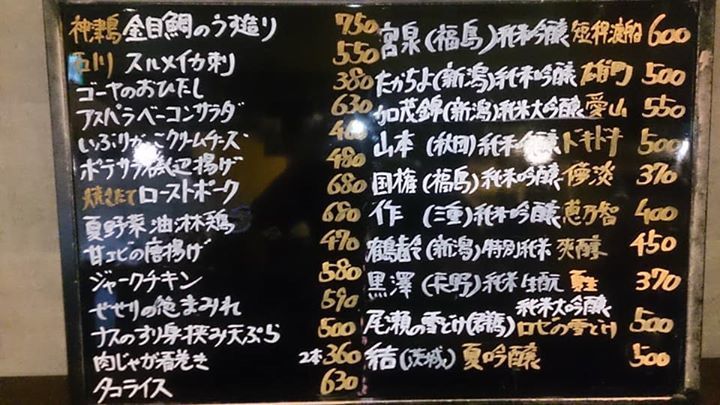 神津島 金目鯛のうす造り 750
石川 スルメイカ刺 550
ゴーヤのおひたし 380
アスパラベーコンサラダ 630
いぶりがっこクリームチーズ 460
ポテサラ磯辺揚げ 480
焼きたて ローストポーク 680
夏野菜油淋鶏 680
甘エビの唐揚げ 470
ジャークチキン 580
せせりの塩まみれ 590
ナスのすり身挟み天ぷら 500
肉じゃが春巻き 2本 360
タコライス 630
宮泉(福島)純米吟醸 短稈渡船 600
たかちよ(新潟)純米吟醸 雄町 500
加茂錦(新潟)純米大吟醸 愛山 550
山本(秋田)純米吟醸 ドキドキ 500
国権(福島)純米吟醸 優淡 370
作(三重)純米吟醸 恵乃智 400
鶴齢(新潟)特別純米 爽醇 450
黒澤(長野)純米生酛 夏生 370
尾瀬の雪どけ(群馬)純米大吟醸 ロゼの雪どけ 500
結(茨城)夏吟醸 500